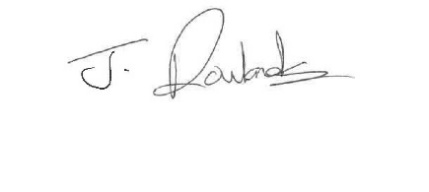 J. Rowlands